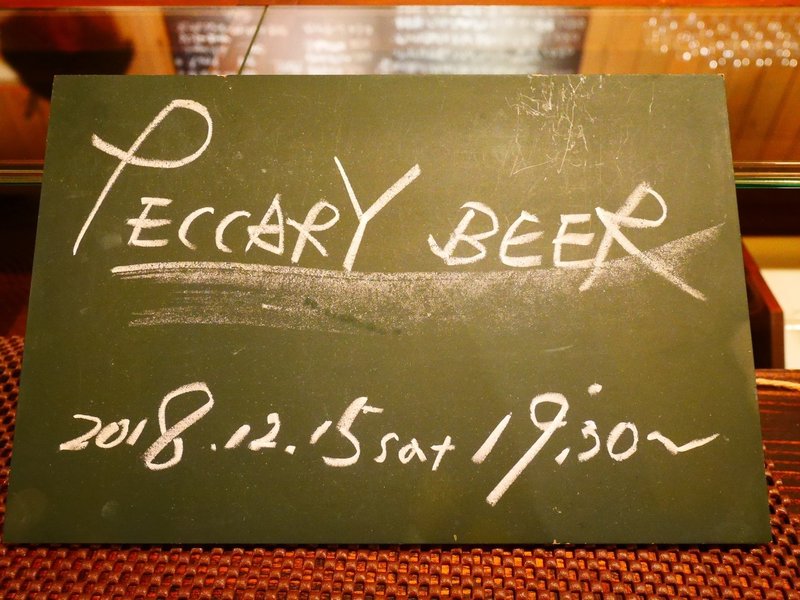 PECCARY BEER
2018.12.15 sat 19:30~